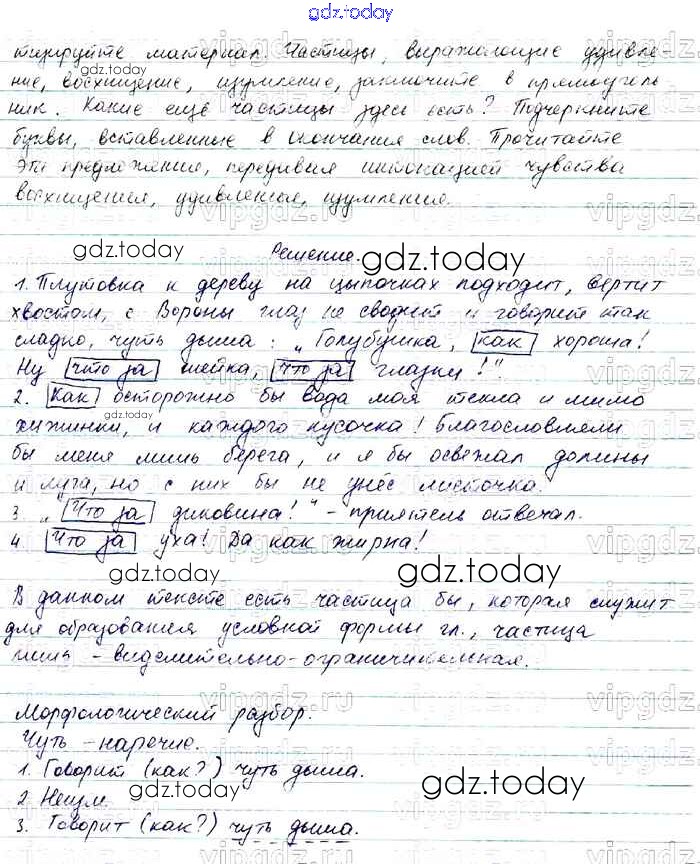 gdz.today
тизируйте материал. Частицы, выражающие удивле-
ние, восхищение, изумление, заключите в прямоуголь
ник. Какие ещё частицы здесь есть? Подчеркните
буквы, вставленные в окончания слов. Прочитайте
эти предложения, передавая интонацией чувства
восхищения, удивления, изумления.
Решение.
1. Плутовка к дереву на цыпочках подходит, вертит
хвостом, с Вороны глаз не сводит и говорит так
сладко, чуть дыша: „Голубушка, как хороша!
Ну что за шейка, что за глазки!"
2. Как осторожно бы вода моя текла и мимо
хижинки, и каждого кусочка! Благословляли
бы меня лишь берега, и я бы освежал долины
и луга, но с них бы не унёс листочка.
3. „Что за диковина!" - приятель отвечал.
4. Что за уха! Да как жирна!
В данном тексте есть частица бы, которая служит
для образования условной формы гл., частица
лишь - выделительно-ограничительная.
Морфологический разбор.
Чуть - наречие.
1. Говорит (как?) чуть дыша.
2. Неизм.
3. Говорит (как?) чуть дыша.
gdz.today
gdz.today
gdz.today
gdz.today
gdz.today
gdz.today
gdz.today
gdz.today
gdz.today
vipgdz.ru